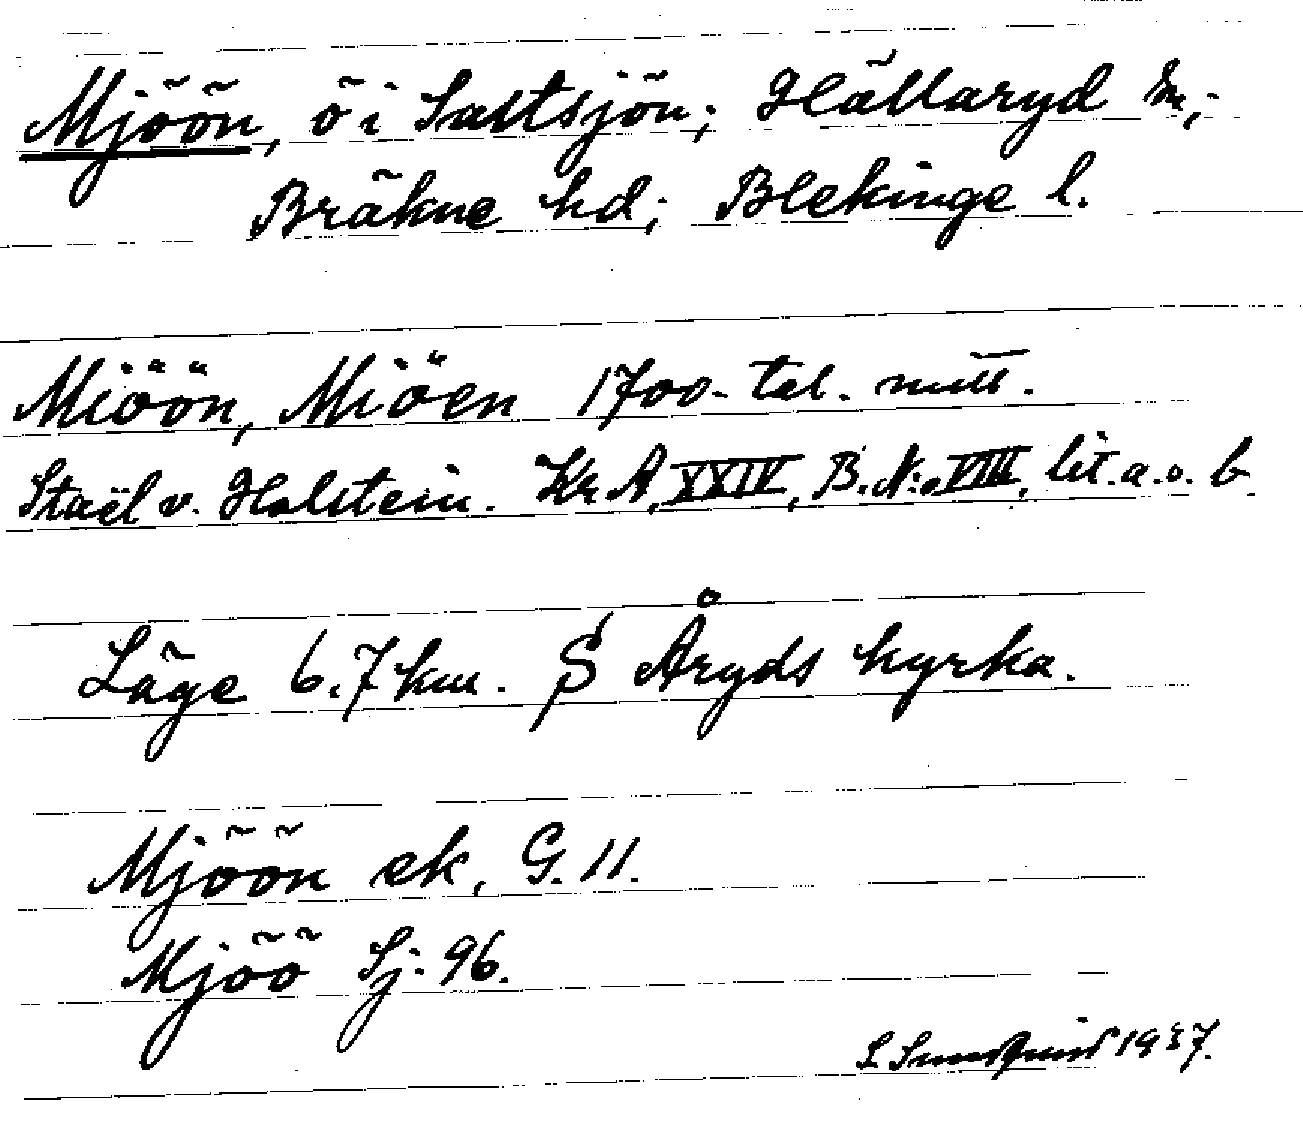 Mjöön, ö i Saltsjön; Hällaryd sn;
Bräkne hd; Blekinge l.
Miöön, Miöen 1700-tal. mitt.
Staël v. Holstein. Kr A, XXIV, B. N:o VIII, lit. a. o. b
Läge 6.7 km. S Åryds kyrka.
Mjöön ek, G. 11.
Mjöö Sj. 96.
1937.